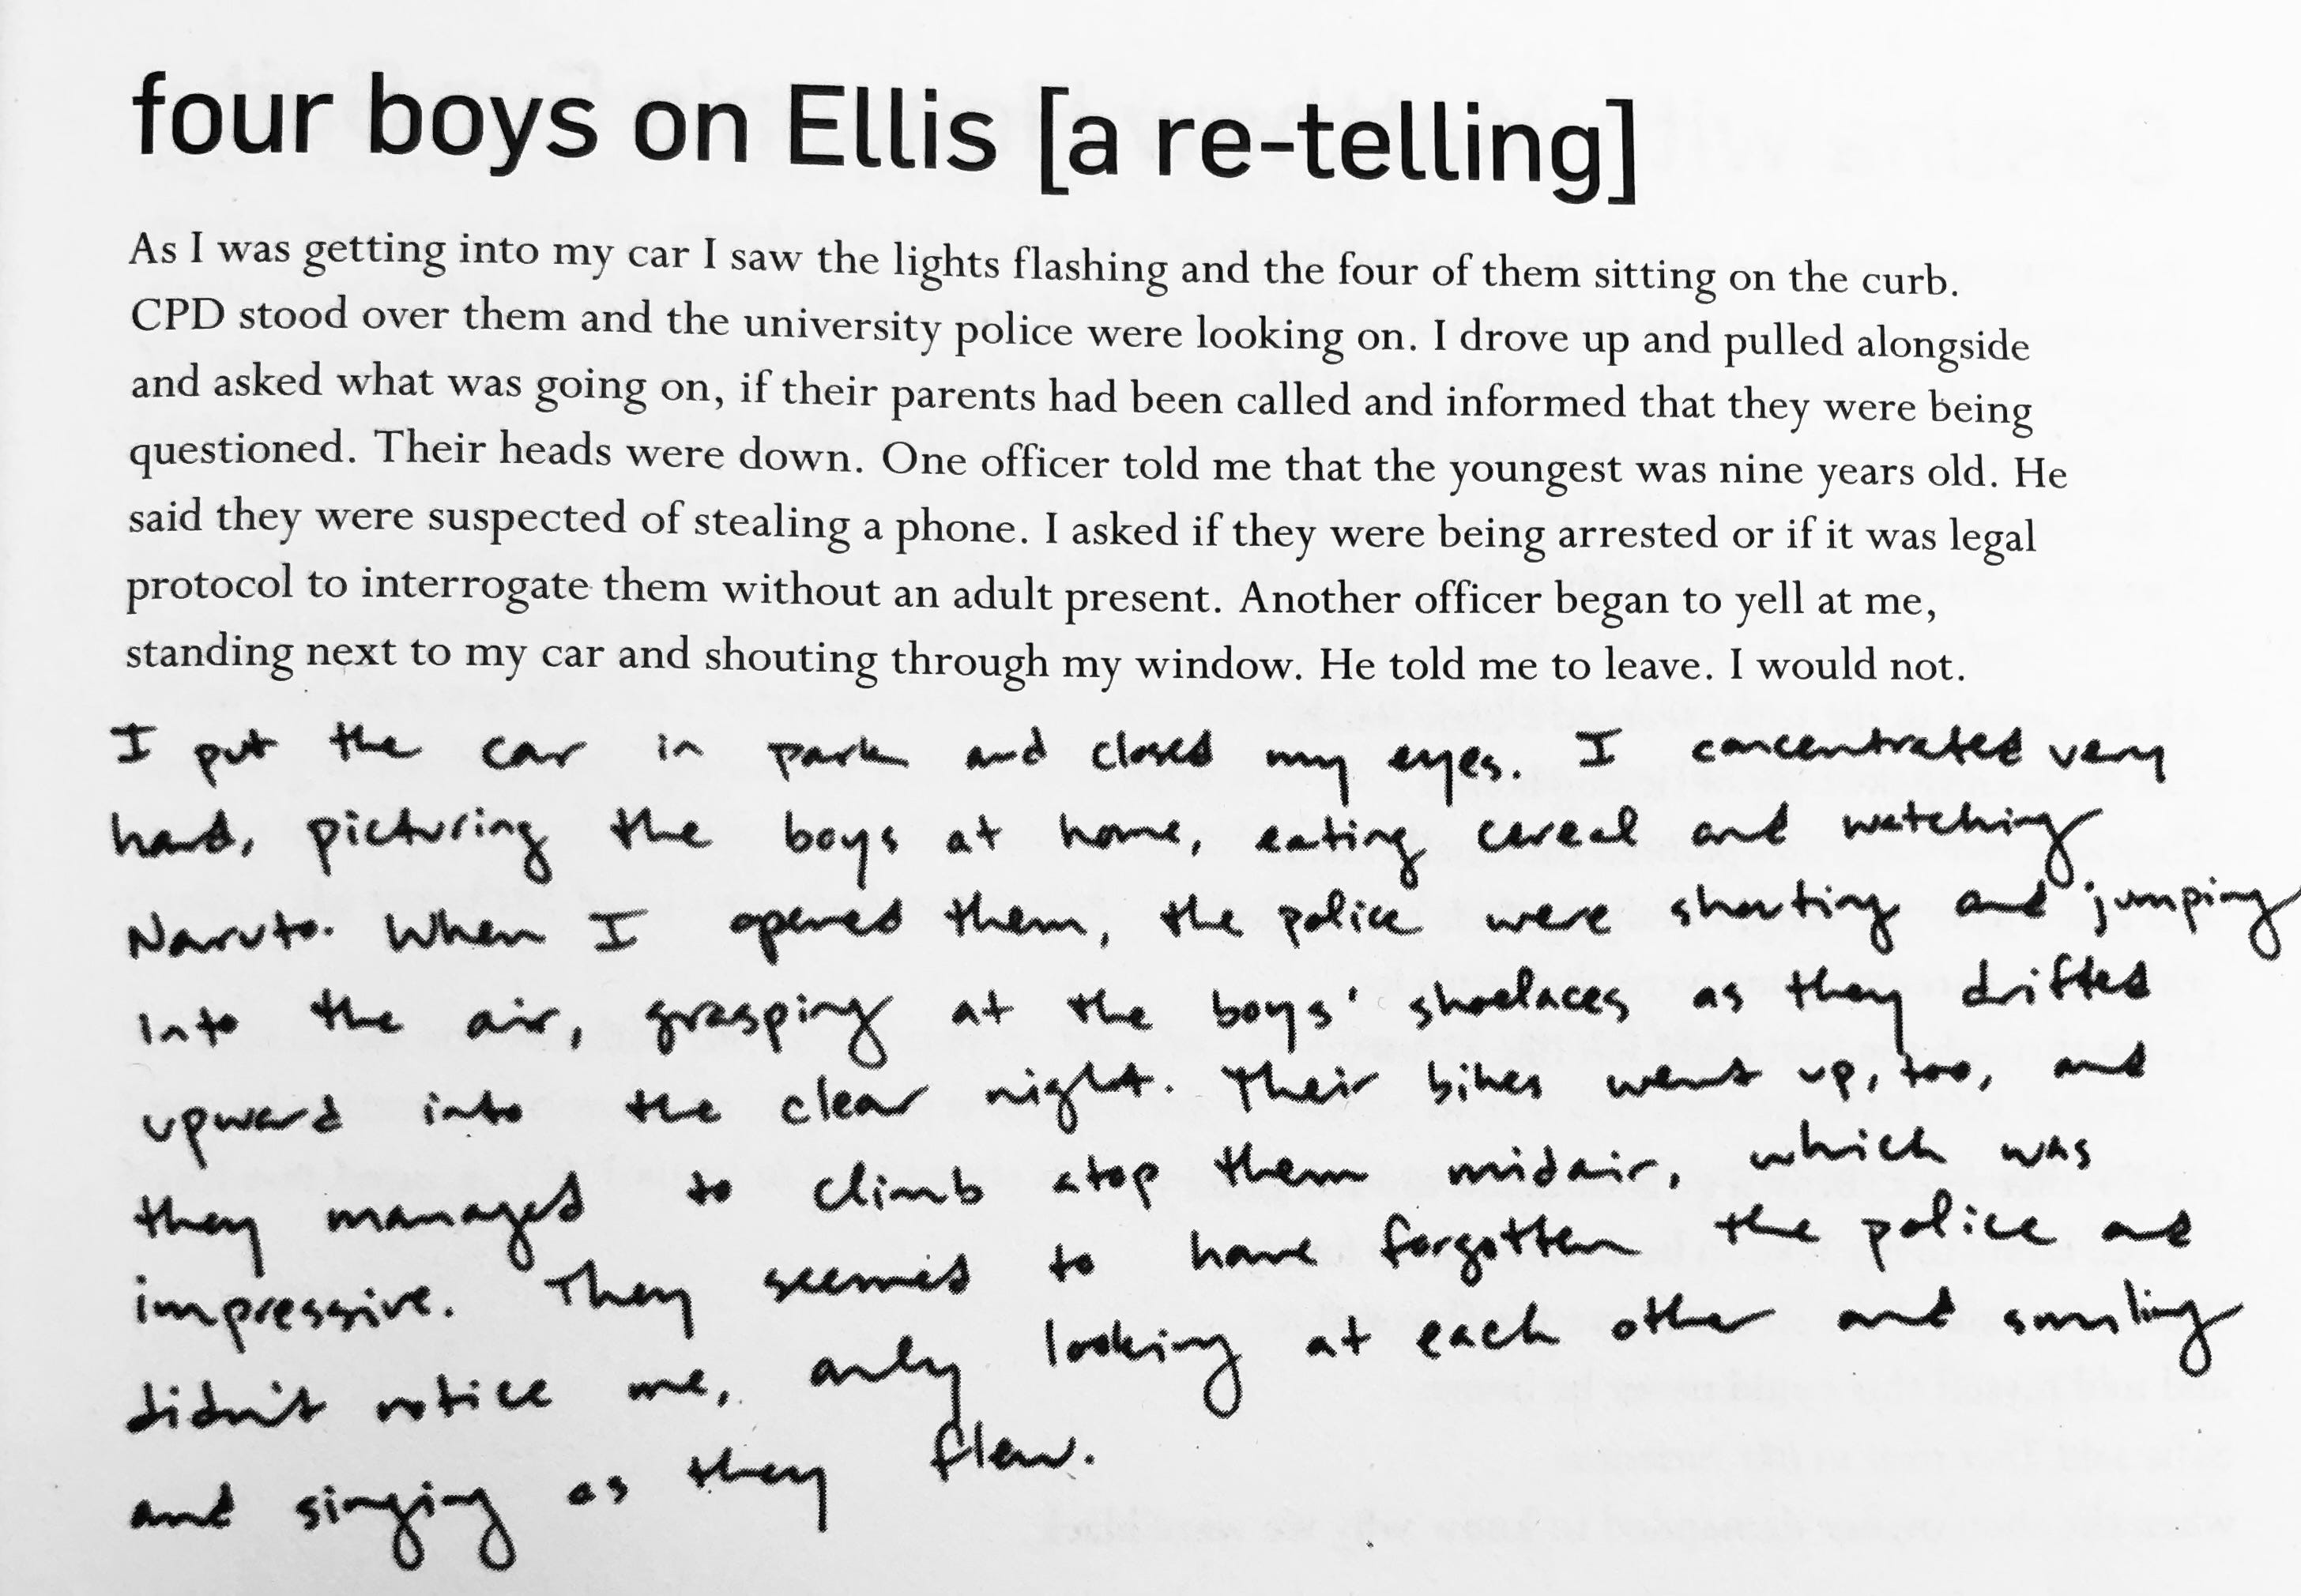 four boys on Ellis [a re-telling]
As I was getting into my car I saw the lights flashing and the four of them sitting on the curb.
CPD stood over them and the university police were looking on. I drove up and pulled alongside
and asked what was going on, if their parents had been called and informed that they were being
questioned. Their heads were down. One officer told me that the youngest was nine years old. He
said they were suspected of stealing a phone. I asked if they were being arrested or if it was legal
protocol to interrogate them without an adult present. Another officer began to yell at me,
standing next to my car and shouting through my window. He told me to leave. I would not.
I put the car in park and closed my eyes. I concentrated very
hard, picturing the boys at home, eating cereal and watching
Naruto. When I opened them, the police were shouting and jumping
into the air, grasping at the boys' shoelaces as they drifted
upward into the clear night. Their bikes went up, too, and
they managed to climb atop them midair, which was
impressive. They seemed to have forgotten the police and
didn't notice me, only looking at each other and smiling
and singing as they flew.